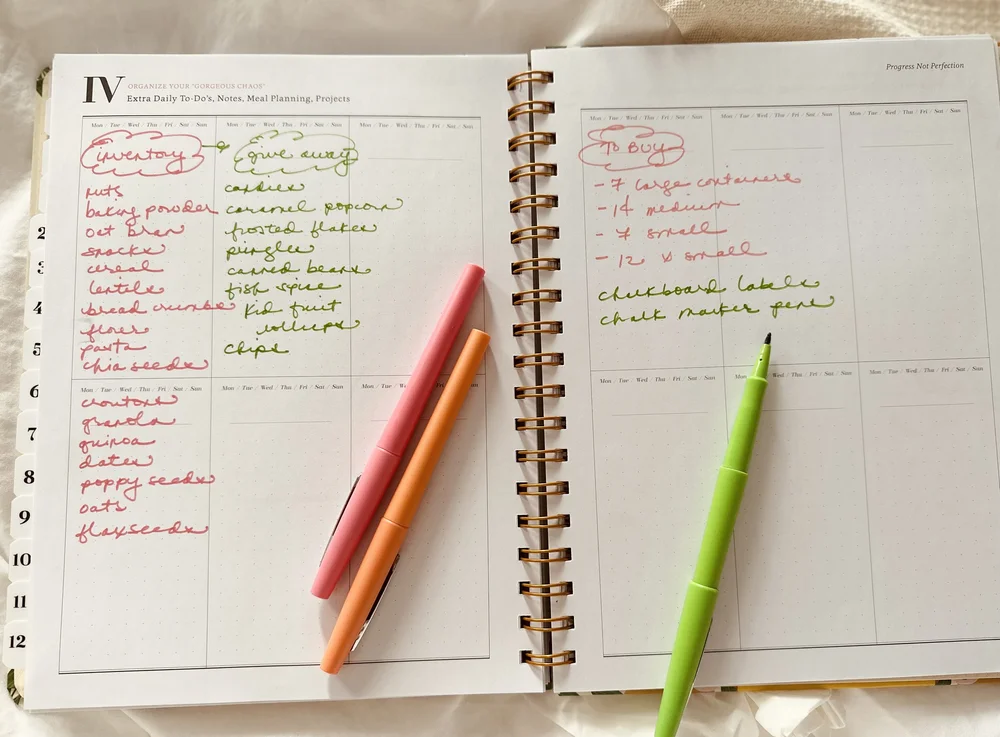 IV
ORGANIZE YOUR "GORGEOUS CHAOS"
Extra Daily To-Do's, Notes, Meal Planning, Projects
Mon / Tue / Wed / Thu / Fri / Sat / Sun
Mon / Tue / Wed / Thu / Fri / Sat / Sun
Mon / Tue / Wed / Thu / Fri / Sat / Sun
inventory
nuts
baking powder
oat bran
snacks
cereal
lentils
bread crumbs
flour
pasta
chia seeds
give away
candies
caramel popcorn
frosted flakes
pringles
canned beans
fish spice
kid fruit
rollups
chips
Mon / Tue / Wed / Thu / Fri / Sat / Sun
Mon / Tue / Wed / Thu / Fri / Sat / Sun
Mon / Tue / Wed / Thu / Fri / Sat / Sun
croutons
granola
quinoa
dates
poppy seeds
oats
flaxseeds
2
3
4
5
6
7
8
9
10
11
12
Progress Not Perfection
Mon / Tue / Wed / Thu / Fri / Sat / Sun
Mon / Tue / Wed / Thu / Fri / Sat / Sun
Mon / Tue / Wed / Thu / Fri / Sat / Sun
TO BUY
- 7 large containers
- 14 medium
- 7 small
- 12 x small
chalkboard labels
chalk marker pens
Mon / Tue / Wed / Thu / Fri / Sat / Sun
Wed / Thu / Fri / Sat / Sun
Mon / Tue / Wed / Thu / Fri / Sat / Sun